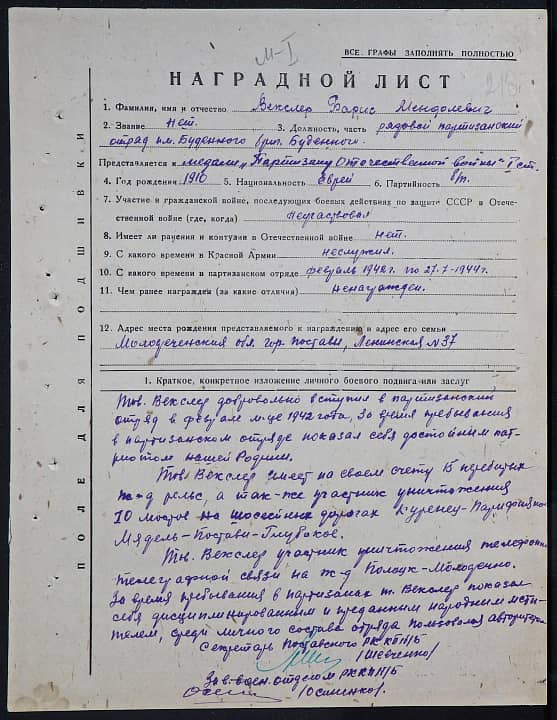 М-I
ВСЕ ГРАФЫ ЗАПОЛНЯТЬ ПОЛНОСТЬЮ
НАГРАДНОЙ ЛИСТ
1. Фамилия, имя и отчество Векслер Барис Мендолевич
2. Звание Нет. 3. Должность, часть рядовой партизанский
отряд им. Буденного
Представляется к медали „Партизану Отечественной войны" I ст.
4. Год рождения 1910 5. Национальность Еврей 6. Партийность б/п.
7. Участие в гражданской войне, последующих боевых действиях по защите СССР и Отече-
ственной войне (где, когда) Неучаствовал
8. Имеет ли ранения и контузии в Отечественной войне нет.
9. С какого времени в Красной Армии неслужил.
10. С какого времени в партизанском отряде февраль 1942г. по 27.7-1944г.
11. Чем ранее награжден (за какие отличия) Ненагражден.
12. Адрес места рождения представляемого к награждению и адрес его семьи
Молодеченская обл. гор. Постави, Ленинская N 37
ПОЛЕ ДЛЯ ПОДШИВКИ
1. Краткое, конкретное изложение личного боевого подвига или заслуг
Тов. Векслер добровольно вступил в партизанский
отряд в феврале м-це 1942 года, За время пребывания
в партизанском отряде показал себя достойным пат-
риотом нашей Родины.
Тов. Векслер имеет на своем счету 15 перебитых
ж-д рельс, а так-же участник уничтожения
10 мостов на шосейных дорогах Куренец-
Мядель-Постави-Глубокое.
Тов. Векслер участник уничтожения телефон.
телеграфной связи на ж-д Полоцк-Молодечно.
За время пребывания в партизанах т. Векслер показал
себя дисциплинированным и преданным народным мсти-
телем, среди личного состава отряда пользовался авторитетом
Секретарь Поставского РК КП/б/Б
/Шевченко/
Зав. воен. отделом РК КП/б/Б
/Осипенко/.